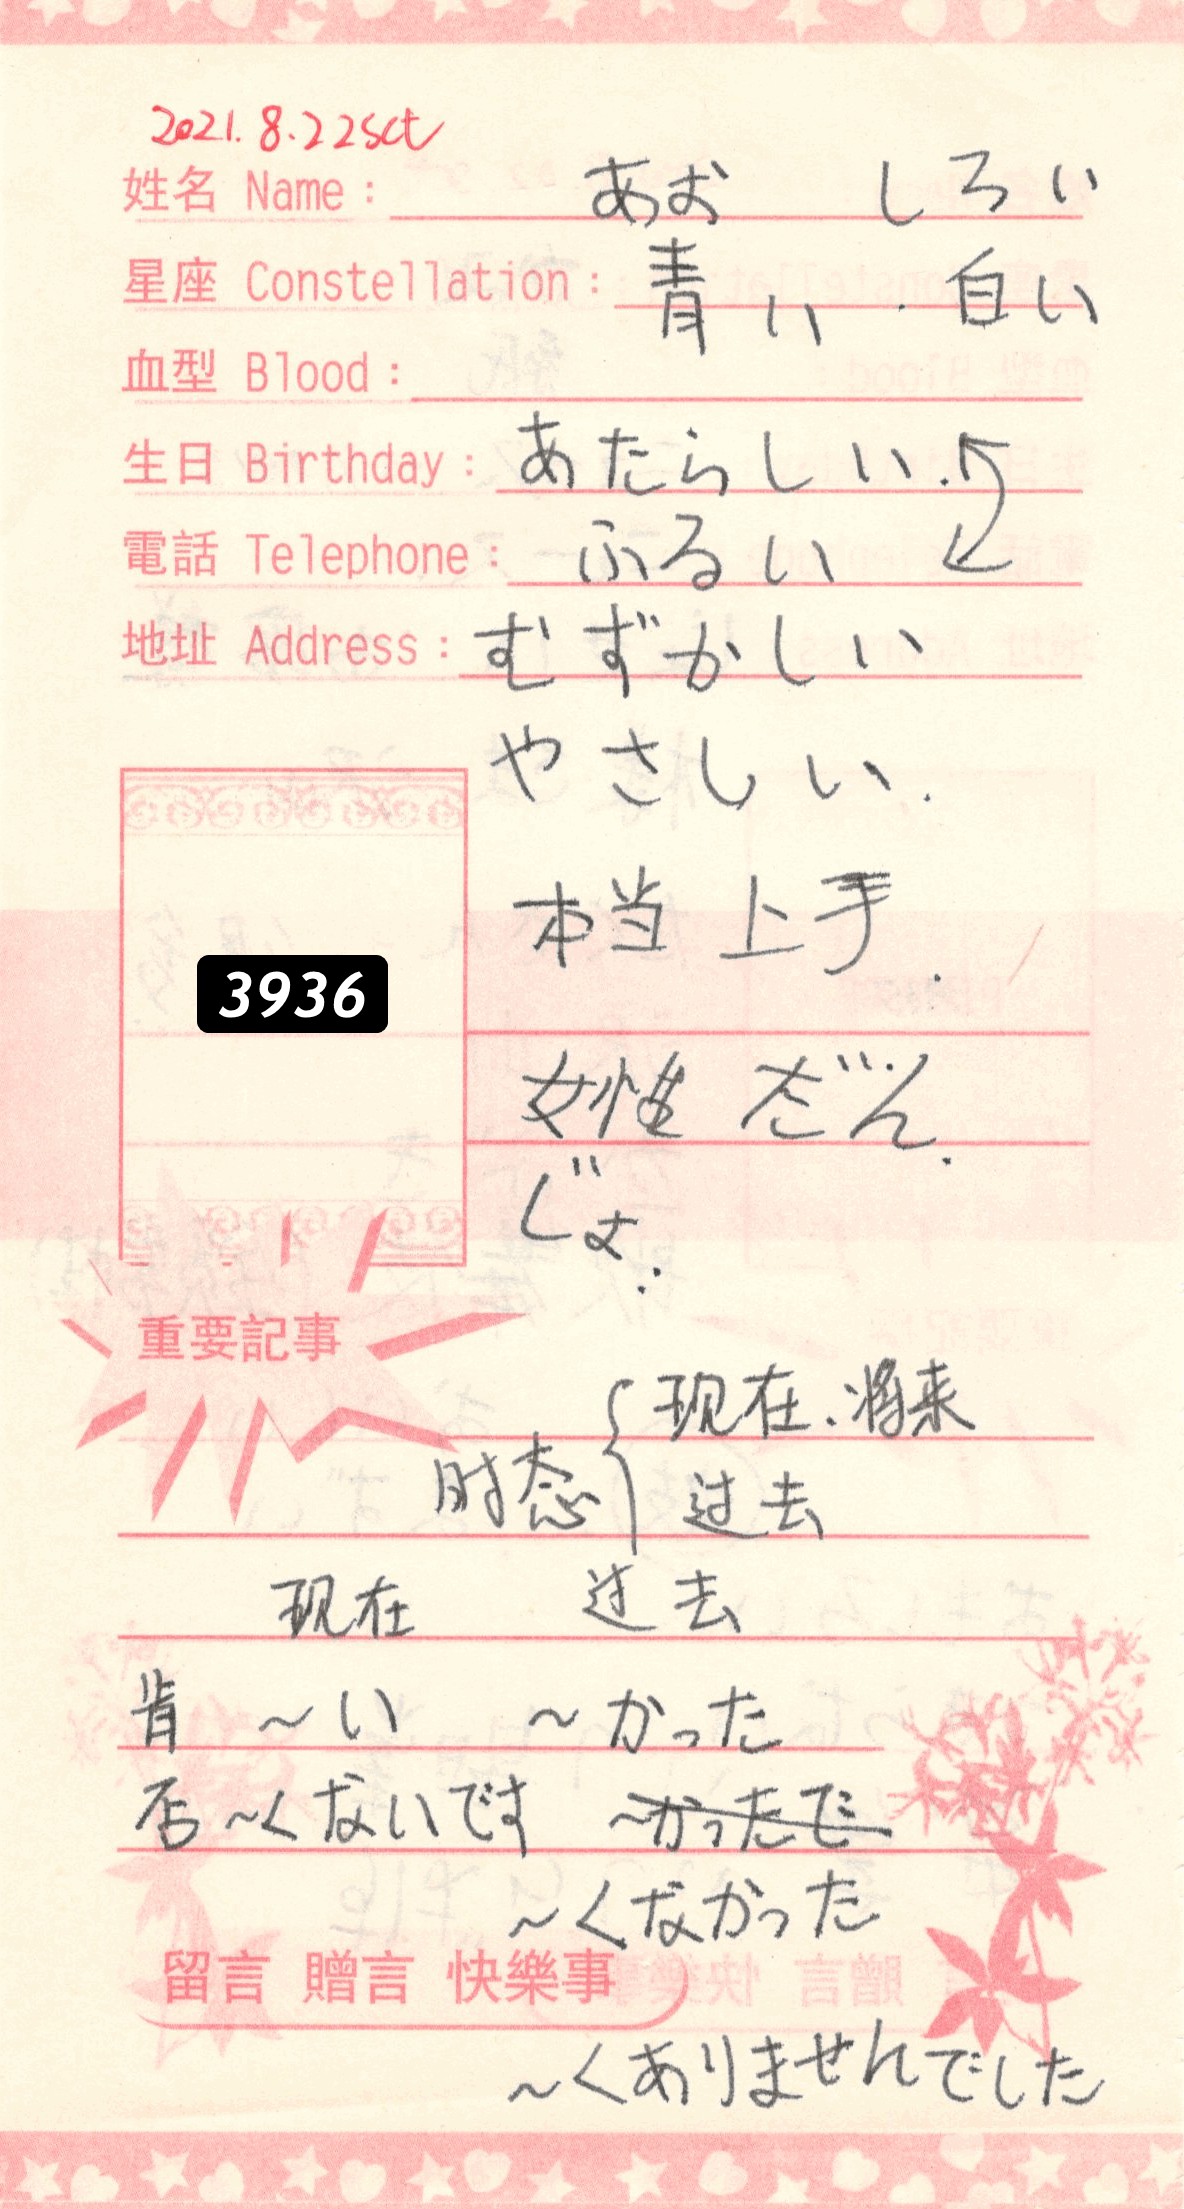 2021.8.22sat
姓名 Name： あお しろい
星座 Constellation： 青い 白い
血型 Blood：
生日 Birthday： あたらしい.
電話 Telephone： ふるい
地址 Address： むずかしい
やさしい.
本当 上手.
3936
女性 だん.
じょ.
重要記事
现在.将来
时态
过去
现在 过去
肯 ～い ～かった
否 ～くないです ～かったで
～くなかった
留言 贈言 快樂事
～くありませんでした